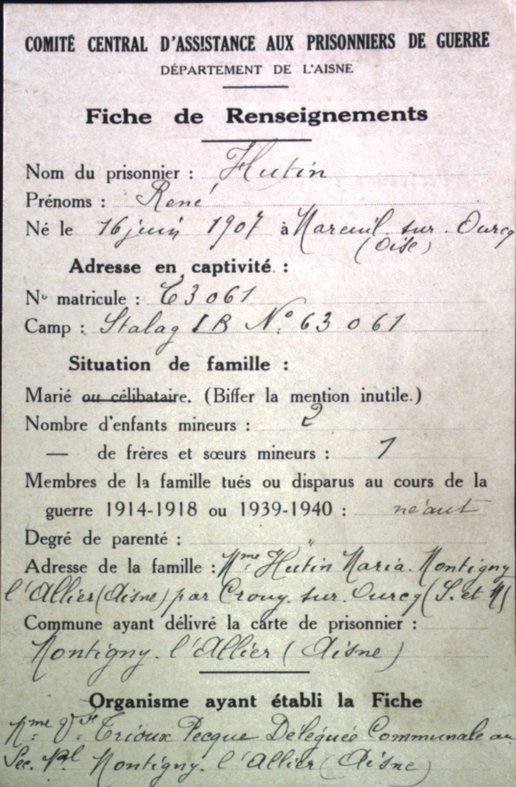 COMITÉ CENTRAL D'ASSISTANCE AUX PRISONNIERS DE GUERRE
DÉPARTEMENT DE L'AISNE
Fiche de Renseignements
Nom du prisonnier : Hutin
Prénoms : René
Né le 16 juin 1907 à Mareuil sur Ourcq
(Oise)
Adresse en captivité :
No matricule : 63061
Camp : Stalag IB No 63061
Situation de famille :
Marié ou célibataire. (Biffer la mention inutile.)
Nombre d'enfants mineurs : 2
— de frères et sœurs mineurs : 1
Membres de la famille tués ou disparus au cours de la
guerre 1914-1918 ou 1939-1940 : néant
Degré de parenté : "
Adresse de la famille : Mme Hutin Maria. Montigny
l'Allier (Aisne) par Crouy-sur-Ourcq (S. et M)
Commune ayant délivré la carte de prisonnier :
Montigny-l'Allier (Aisne)
Organisme ayant établi la Fiche
Mme Vve Trioux Pecque Déléguée Communale au
Sec. Nal Montigny-l'Allier (Aisne)